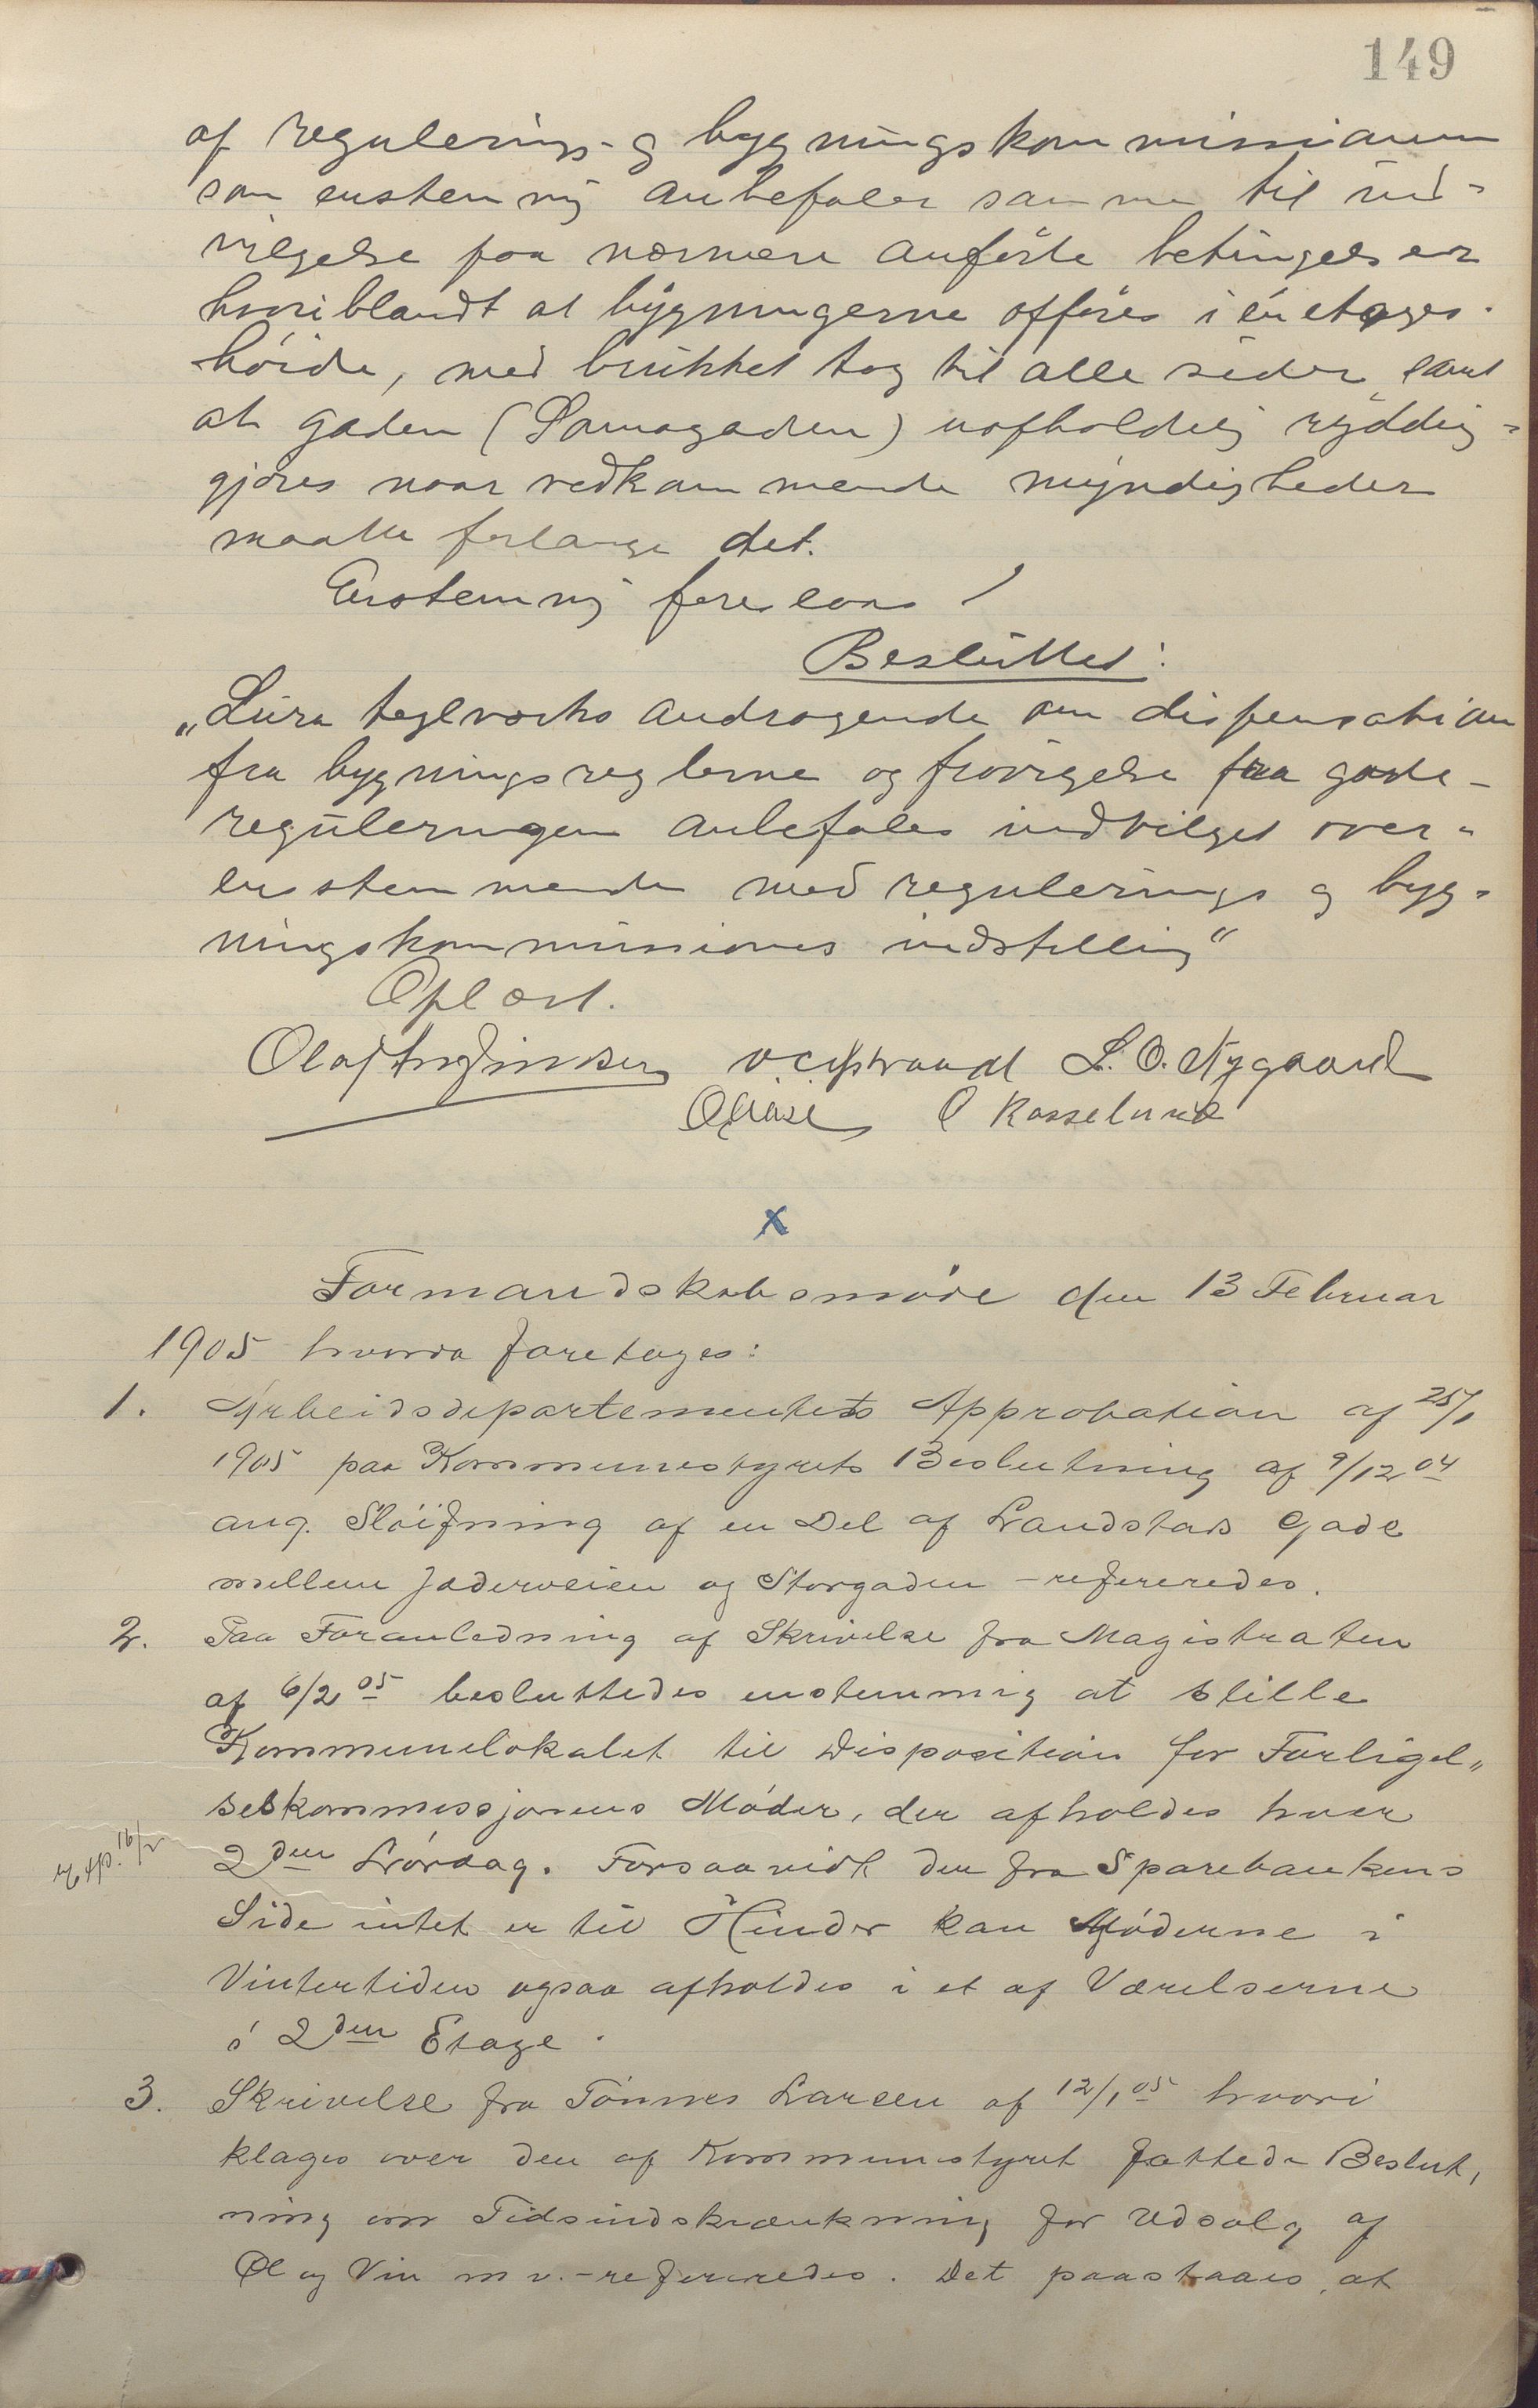 149
af regulerings- og bygningskommissionen
som enstemmig anbefaler samme til ind-
vilgelse paa nærmere anførte betingelser
hvoriblandt at bygningerne opføres i én etages
høide, med brukket tag til alle sider samt
at gaden (Parnagaden) uopholdelig ryddig-
gjøres naar vedkommende myndigheder
maatte forlange det.
Enstemmig
Besluttet:
„Lura teglverks andragende om dispensation
fra bygningsreglerne og fravigelse fra gade-
reguleringen anbefales indvilget over-
ensstemmende med regulerings og byg-
ningskommissiones indstilling“
Oplæst.
L. O. Nygaard
O Kosselund
x
Formandskabsmøde den 13 Februar
1905 hvorda foretoges:
1. Arbeidsdepartementets Approbation af 25/1
1905 paa Kommunestyrets Beslutning af 9/12 04
ang. Sløifning af en Del af Landstads Gade
mellem Jæderveien og Storgaden - refereredes.
2. Paa Foranledning af Skrivelse fra Magistraten
af 6/2 05 besluttedes enstemmig at stille
Kommunelokalet til Disposition for Forligel„
seskommissjonens Møder, der afholdes hver
Exp. 16/2
2den Lørdag. Forsaavidt der fra Sparebankens
Side intet er til Hinder kan Møderne i
Vintertiden ogsaa afholdes i et af Værelserne
i 2den Etage.
3. Skrivelse fra Tønnes Larsen af 12/1 05 hvori
klages over den af Kommunestyret fattede Beslut,
ning om Tidsindskrænkning for Udsalg af
Øl og Vin m v. - refereredes. Det paastaaes, at